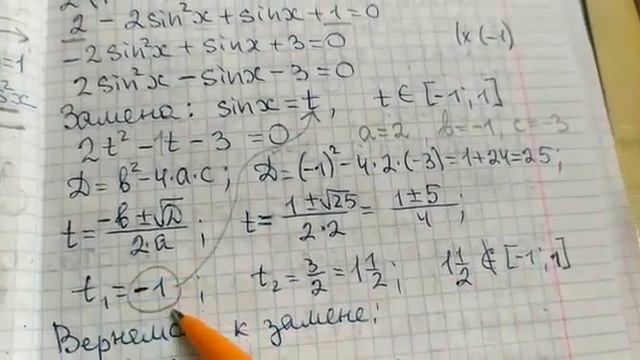 2 - 2sin²x + sinx + 1 = 0
=1
-2sin²x + sinx + 3 = 0 | x (-1)
2sin²x - sinx - 3 = 0
Замена: sinx = t, t ∈ [-1; 1]
2t² - 1t - 3 = 0 a = 2 b = -1, c = -3
D = b² - 4·a·c; D = (-1)² - 4·2·(-3) = 1 + 24 = 25;
t = (-b ± √D)/(2·a); t = (1 ± √25)/(2·2) = (1 ± 5)/4;
t₁ = -1; t₂ = 3/2 = 1 1/2; 1 1/2 ∉ [-1; 1]
к замене: